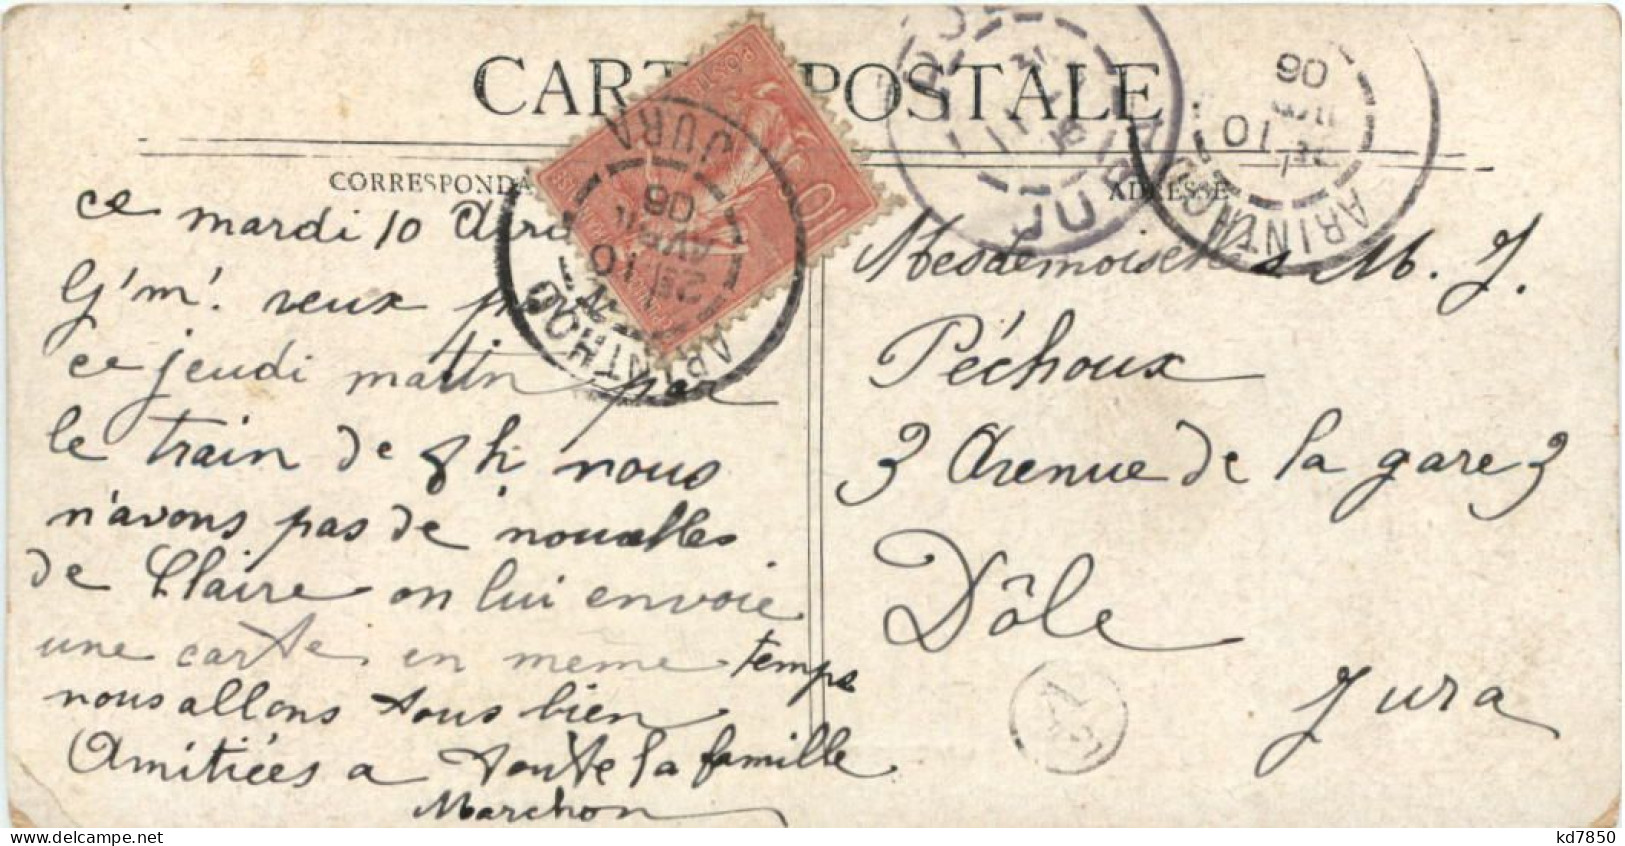 CARTE POSTALE
CORRESPONDA
ADRESSE
ce mardi 10 Avri
G'm'. veux
ce jeudi matin par
le train de 8h nous
n'avons pas de nouvelles
de Claire on lui envoie
une carte en meme temps
nous allons tous bien
Amitiées a toute la famille
Marchon
Mesdemoiselles M. J.
Péchoux
3 Avenue de la gare 3
Dôle
Jura
POSTE
10
ARINTHOD
2E
10
AVRIL
06
JURA
JURA
ARINTHOD
2E
10
AVRIL
06
kd7850